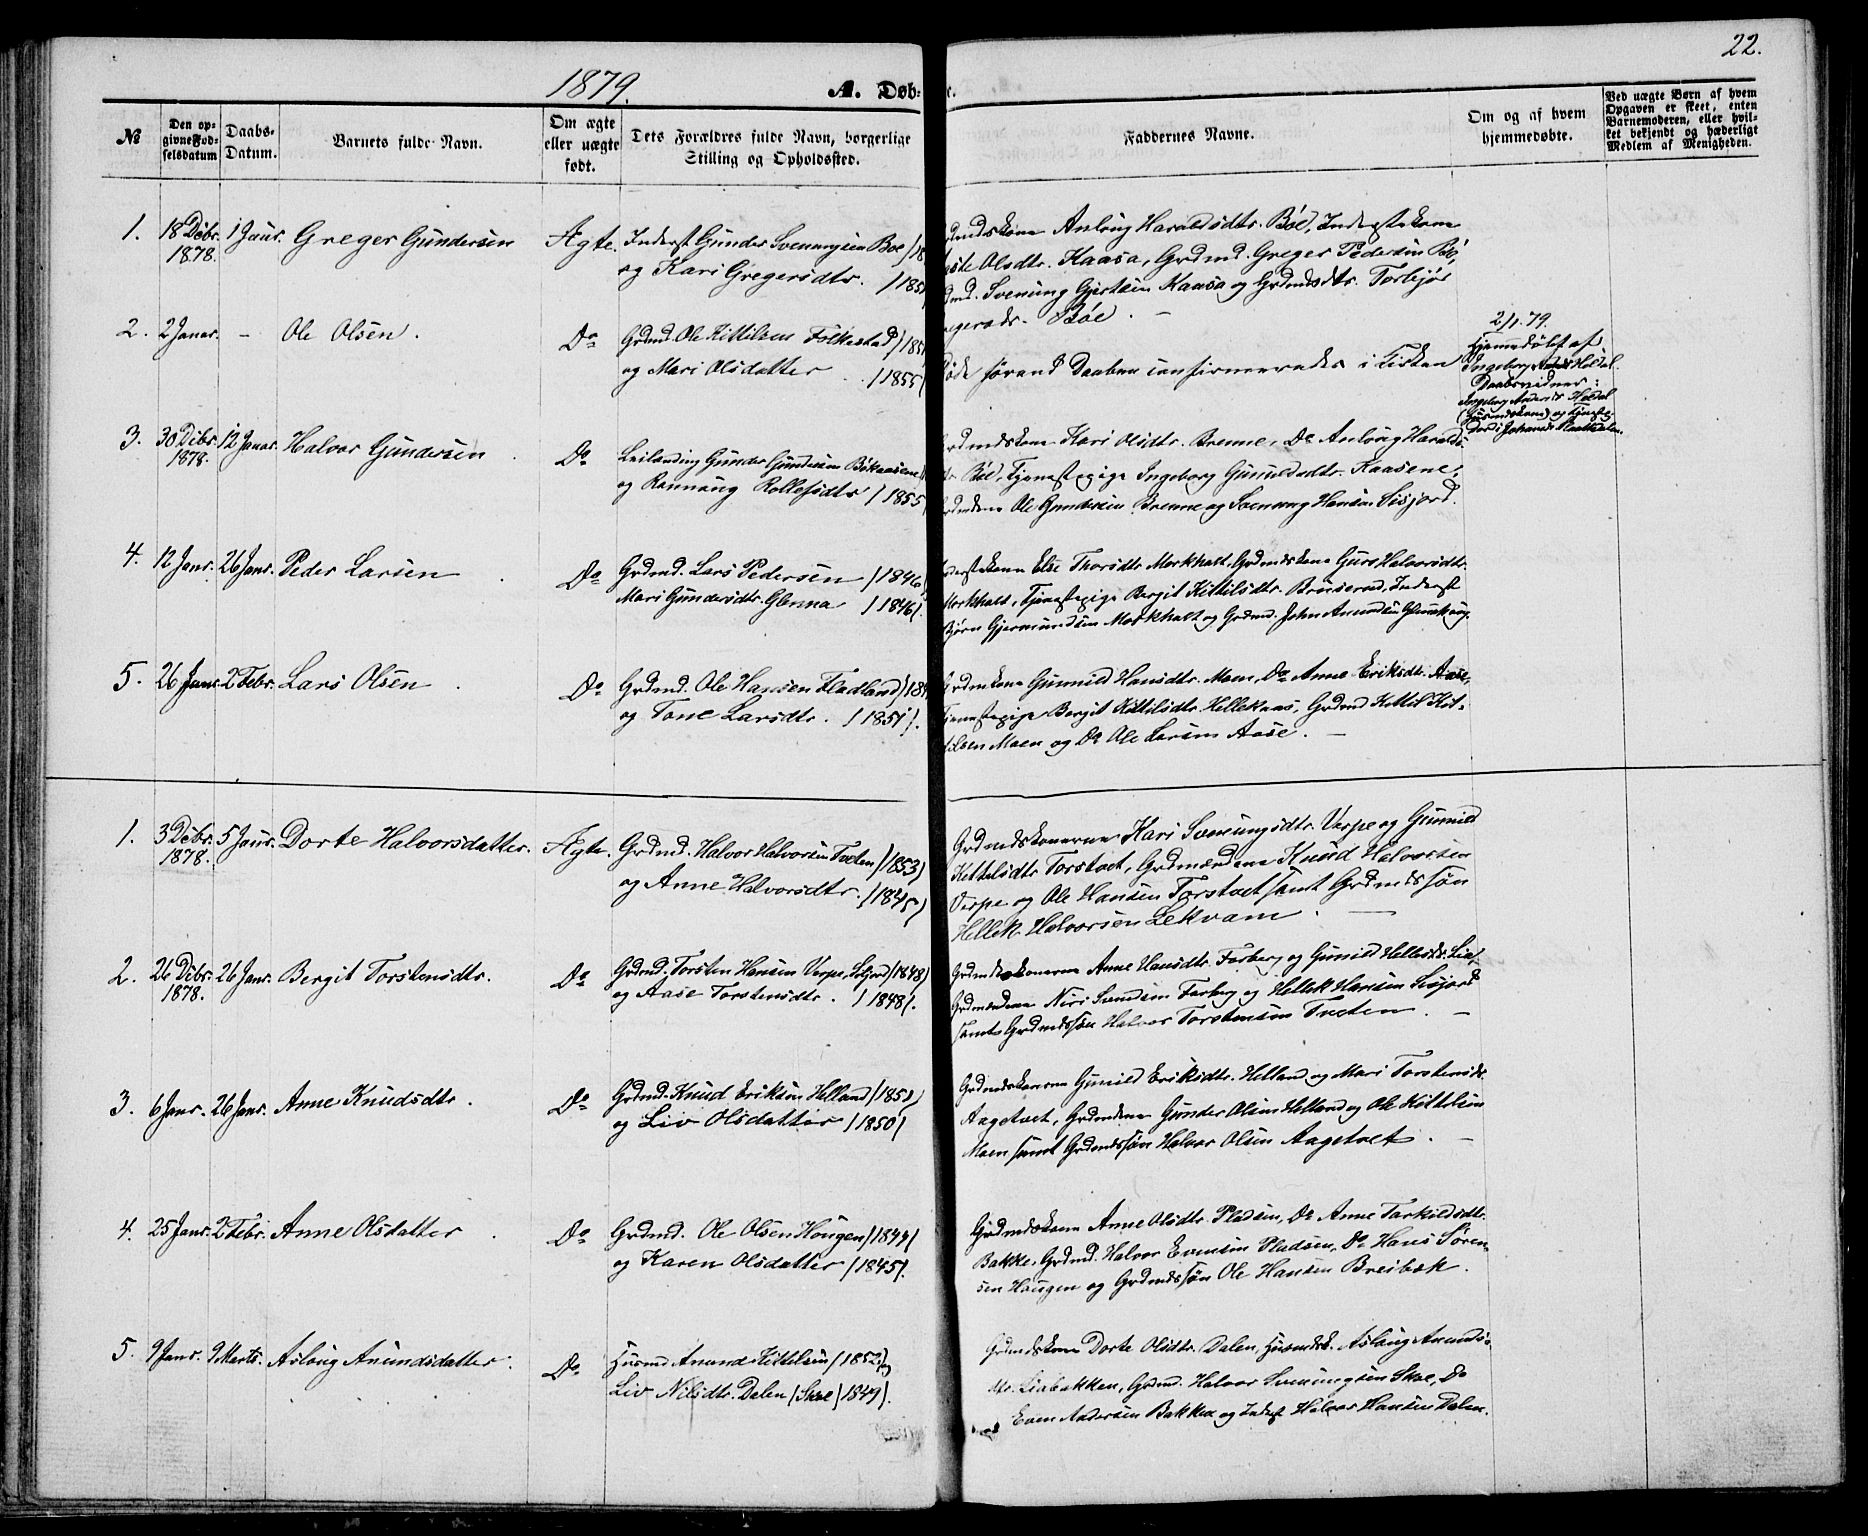 22.
1879. A. Døb-
№ Den opgivne Fødselsdatum Daabs-Datum. Barnets fulde Navn. Om ægte eller uægte født. Dets Forældres fulde Navn, borgerlige Stilling og Opholdssted. Faddernes Navne. Om og af hvem hjemmedøbte. Ved uægte Børn af hvem Opgaven er skeet, enten Barnemoderen, eller hvilket bekjendt og hæderligt Medlem af Menigheden.
1. 18 Debr. 1878. 1 Janr. Greger Gundersen Ægte. Inderst Gunder Svenungsen Boe
og Kari Gregersdtr.
Anlaug Haraldsdtr. Böe, Inderstekone
Olsdtr. Kaasa, Grdmd. Greger Pedersen Bö,
Svenung Gjertsen Kaasa og Grdmdsdtr. Torbjör
Böe. —
2. 2 Janr. – Ole Olsen. Do Grdmd. Ole Kittilsen Folkestad
og Mari Olsdatter /1855/
förend Daaben confirmeredes i Kirken
2/1. 79.
Hjemmedöbt af
Ingeborg Holdal.
Daabsvidner:
Ingeborg Andersdtr Holdal
(Husmdskone) og Tjenestep.
3. 30 Debr. 1878. 12 Janr. Halvor Gundersen Do Leilending Gunder Gundersen Bökaasene
og Rannaug Rollefsdtr /1855
Kari Olsdtr. Brenne, Do Anlaug Haralds-
Böe, Tjenestepige Ingeborg Gunuldsdtr. Kaasene,
Ole Gundersen Brenne og Svenung Hansen Sisjord.
4. 12 Janr. 26 Janr. Peder Larsen Do Grdmd. Lars Pedersen /1846/
Mari Gundersdtr. Glenna /1846/.
Else Thorsdtr Morkhalt, Grdmdskone Gurs Halvorsdtr.
Morkhalt, Tjenestepige Bergit Kittilsdtr. Bruserud, Inderst
Björn Gjermundsen Morkhalt og Grdmd. John Amundsen
5. 26 Janr. 2 Febr. Lars Olsen Do Grdmd. Ole Hansen Fladland
og Tone Larsdtr. /1851/.
Gunnild Hansdtr. Moen, Do Anne Eriksdtr. Aase,
Tjenestepige Bergit Kittilsdtr. Hellekaas, Grdmd Kittil Kit-
tilsen Moen og Do Ole Larsen Aase. —
1. 3 Debr. 1878. 5 Janr. Dorte Halvorsdatter. Ægte. Grdmd. Halvor Halvorsen Tveten /1853/
og Anne Halvorsdtr. /1845/
Grdmdskonerne Kari Svenungsdtr. Verpe og Gunnild
Kittilsdtr Torstvet, Grdmændene Knud Halvorsen
Verpe og Ole Hansen Torstvet samt Grdmdssön
Hellek Halvorsen Lekvam. —
2. 26 Debr. 1878. 26 Janr. Bergit Torstensdtr. Do Grdmd. Torsten Hansen Verpe, /1848/
og Aase Torstensdtr. /1848/.
Grdmdskonerne Anne Hansdtr. Forberg og Gunild Helleksdtr. Lie,
Grdmændene Niri Svendsen Forberg og Hellek Hansen Sisjord
samt Grdmdssön Halvor Torstensen Tveten. —
3. 6 Janr. 26 Janr. Anne Knudsdtr. Do Grdmd. Knud Eriksen Helland /1851/
og Liv Olsdatter /1850/
Grdmdskonerne Gunild Eriksdtr. Helland og Mari Torstensdtr.
Aagetvet, Grdmdene Gunder Olsen Helland og Ole Kittilsen
Moen samt Grdmdssön Halvor Olsen Aagetvet. —
4. 25 Janr. 2 Febr. Anne Olsdatter Do Grdmd. Ole Olsen Haugen /1844/
og Karen Olsdatter /1845/.
Grdmdskone Anne Olsdtr. Pladsen, Do Anne Tarkildsdtr.
Bakke, Grdmd. Halvor Evensen Pladsen, Do Hans Sören-
sen Haugen og Grdmdssön Ole Hansen Breibæk.
5. 9 Janr. 9 Marts. Aslaug Amundsdatter. Do Husmd Amund Kittilsen /1852/ og
Liv Nilsdtr. Dalen (Skoe) /1849/.
Grdmdskone Dorte Olsdtr. Dalen, Husmdsk. Aslaug Amunds-
dtr. Liabakken, Grdmd. Halvor Svenungsen Skoe, Do
Even Andersen Bakken og Inderst Halvor Hansen Dalen.